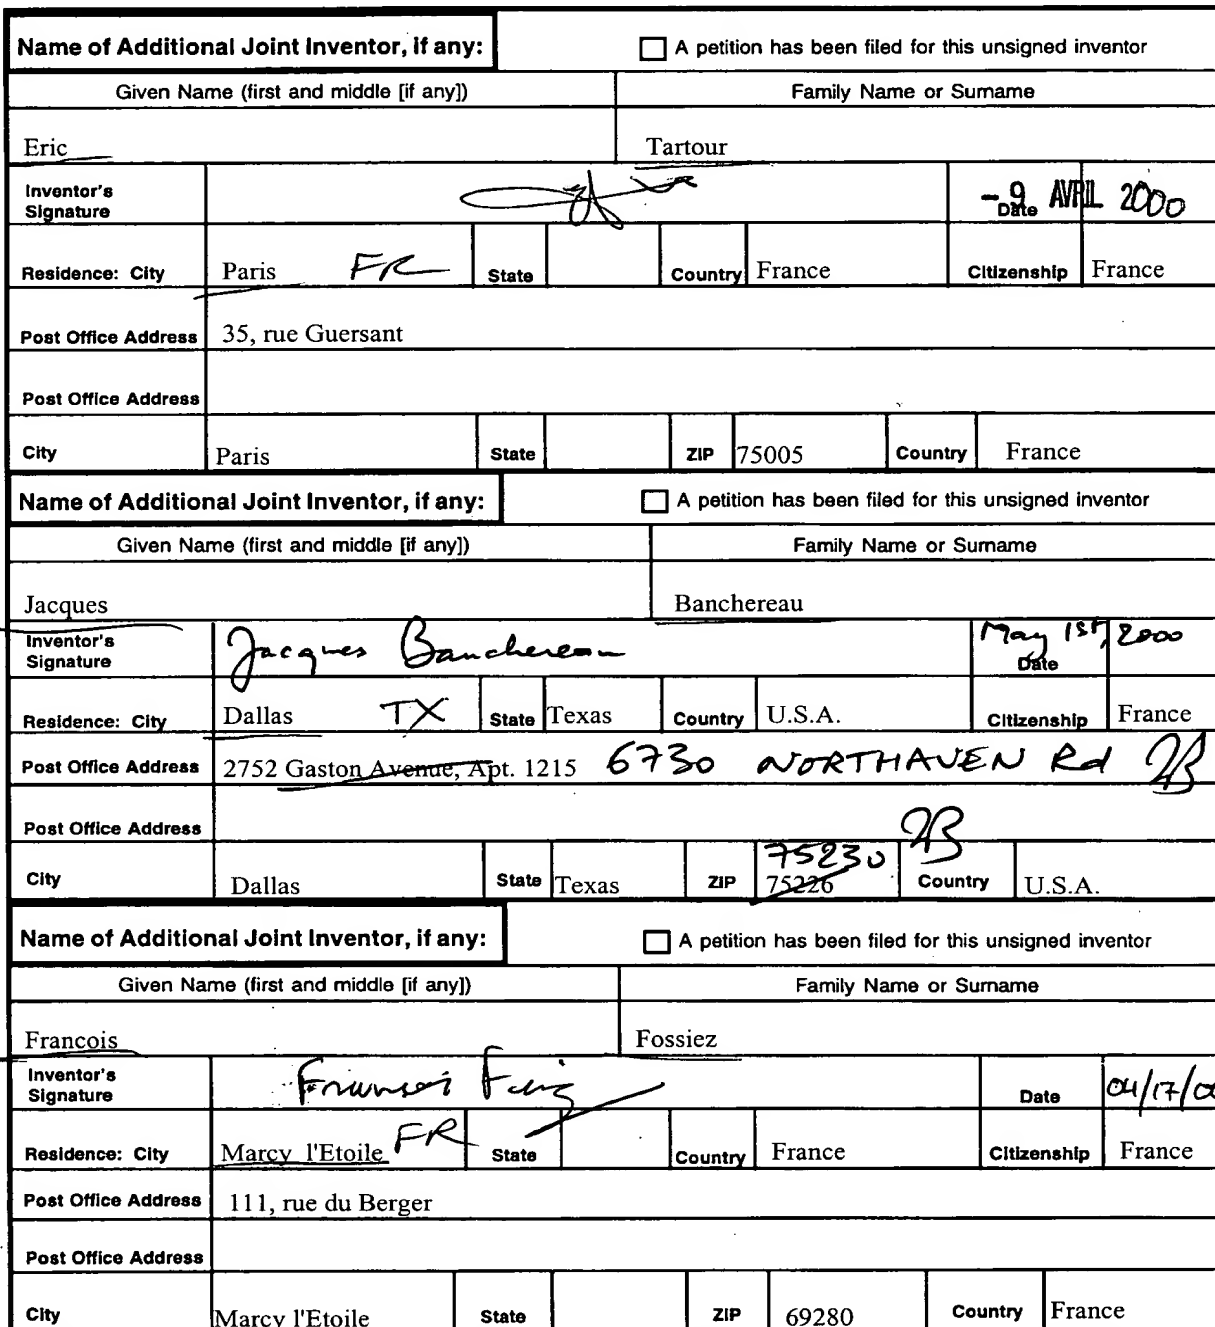 Name of Additional Joint Inventor, if any: A petition has been filed for this unsigned inventor
Given Name (first and middle [if any]) Family Name or Surname
Eric Tartour
Inventor's Signature - 9 AVRIL 2000 Date
Residence: City Paris FR State Country France Citizenship France
Post Office Address 35, rue Guersant
Post Office Address
City Paris State ZIP 75005 Country France
Name of Additional Joint Inventor, if any: A petition has been filed for this unsigned inventor
Given Name (first and middle [if any]) Family Name or Surname
Jacques Banchereau
Inventor's Signature Jacques Banchereau May 1st, 2000 Date
Residence: City Dallas TX State Texas Country U.S.A. Citizenship France
Post Office Address 2752 Gaston Avenue, Apt. 1215 6730 NORTHAVEN Rd JB
Post Office Address JB
City Dallas State Texas ZIP 75230 75226 Country U.S.A.
Name of Additional Joint Inventor, if any: A petition has been filed for this unsigned inventor
Given Name (first and middle [if any]) Family Name or Surname
Francois Fossiez
Inventor's Signature Date 04/17/
Residence: City Marcy l'Etoile FR State Country France Citizenship France
Post Office Address 111, rue du Berger
Post Office Address
City Marcy l'Etoile State ZIP 69280 Country France